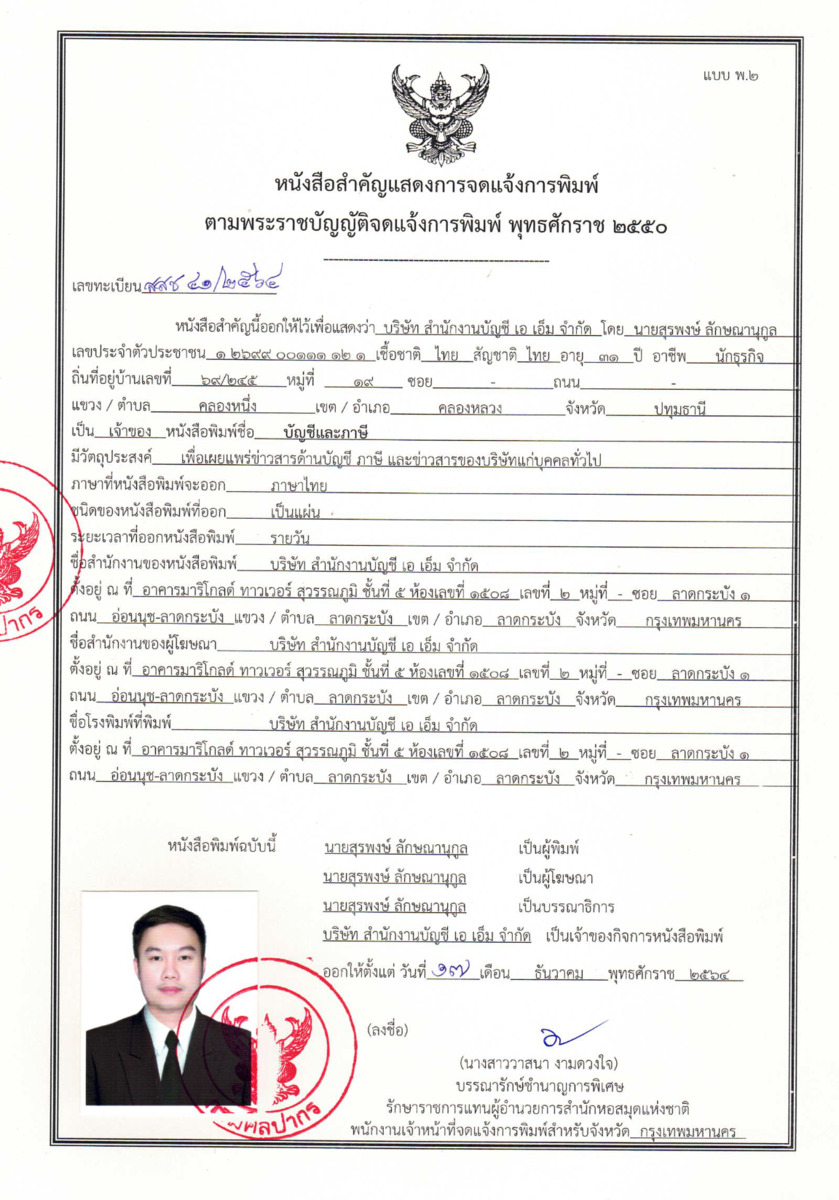 แบบ พ.๒
หนังสือสำคัญแสดงการจดแจ้งการพิมพ์
ตามพระราชบัญญัติจดแจ้งการพิมพ์ พุทธศักราช ๒๕๕๐
เลขทะเบียน สสช ๔๑/๒๕๖๔
หนังสือสำคัญนี้ออกให้ไว้เพื่อแสดงว่า บริษัท สำนักงานบัญชี เอ เอ็ม จำกัด โดย นายสุรพงษ์ ลักษณานุกูล
เลขประจำตัวประชาชน ๑ ๒๖๙๙ ๐๐๑๑๑ ๑๒ ๑ เชื้อชาติ ไทย สัญชาติ ไทย อายุ ๓๑ ปี อาชีพ นักธุรกิจ
ถิ่นที่อยู่บ้านเลขที่ ๖๙/๒๔๕ หมู่ที่ ๑๙ ซอย - ถนน -
แขวง / ตำบล คลองหนึ่ง เขต / อำเภอ คลองหลวง จังหวัด ปทุมธานี
เป็น เจ้าของ หนังสือพิมพ์ชื่อ บัญชีและภาษี
มีวัตถุประสงค์ เพื่อเผยแพร่ข่าวสารด้านบัญชี ภาษี และข่าวสารของบริษัทแก่บุคคลทั่วไป
ภาษาที่หนังสือพิมพ์จะออก ภาษาไทย
ชนิดของหนังสือพิมพ์ที่ออก เป็นแผ่น
ระยะเวลาที่ออกหนังสือพิมพ์ รายวัน
ชื่อสำนักงานของหนังสือพิมพ์ บริษัท สำนักงานบัญชี เอ เอ็ม จำกัด
ตั้งอยู่ ณ ที่ อาคารมาริโกลด์ ทาวเวอร์ สุวรรณภูมิ ชั้นที่ ๕ ห้องเลขที่ ๑๕๐๘ เลขที่ ๒ หมู่ที่ - ซอย ลาดกระบัง ๑
ถนน อ่อนนุช-ลาดกระบัง แขวง / ตำบล ลาดกระบัง เขต / อำเภอ ลาดกระบัง จังหวัด กรุงเทพมหานคร
ชื่อสำนักงานของผู้โฆษณา บริษัท สำนักงานบัญชี เอ เอ็ม จำกัด
ตั้งอยู่ ณ ที่ อาคารมาริโกลด์ ทาวเวอร์ สุวรรณภูมิ ชั้นที่ ๕ ห้องเลขที่ ๑๕๐๘ เลขที่ ๒ หมู่ที่ - ซอย ลาดกระบัง ๑
ถนน อ่อนนุช-ลาดกระบัง แขวง / ตำบล ลาดกระบัง เขต / อำเภอ ลาดกระบัง จังหวัด กรุงเทพมหานคร
ชื่อโรงพิมพ์ที่พิมพ์ บริษัท สำนักงานบัญชี เอ เอ็ม จำกัด
ตั้งอยู่ ณ ที่ อาคารมาริโกลด์ ทาวเวอร์ สุวรรณภูมิ ชั้นที่ ๕ ห้องเลขที่ ๑๕๐๘ เลขที่ ๒ หมู่ที่ - ซอย ลาดกระบัง ๑
ถนน อ่อนนุช-ลาดกระบัง แขวง / ตำบล ลาดกระบัง เขต / อำเภอ ลาดกระบัง จังหวัด กรุงเทพมหานคร
หนังสือพิมพ์ฉบับนี้ นายสุรพงษ์ ลักษณานุกูล เป็นผู้พิมพ์
นายสุรพงษ์ ลักษณานุกูล เป็นผู้โฆษณา
นายสุรพงษ์ ลักษณานุกูล เป็นบรรณาธิการ
บริษัท สำนักงานบัญชี เอ เอ็ม จำกัด เป็นเจ้าของกิจการหนังสือพิมพ์
ออกให้ตั้งแต่ วันที่ ๑๗ เดือน ธันวาคม พุทธศักราช ๒๕๖๔
(ลงชื่อ)
(นางสาววาสนา งามดวงใจ)
บรรณารักษ์ชำนาญการพิเศษ
รักษาราชการแทนผู้อำนวยการสำนักหอสมุดแห่งชาติ
พนักงานเจ้าหน้าที่จดแจ้งการพิมพ์สำหรับจังหวัด กรุงเทพมหานคร